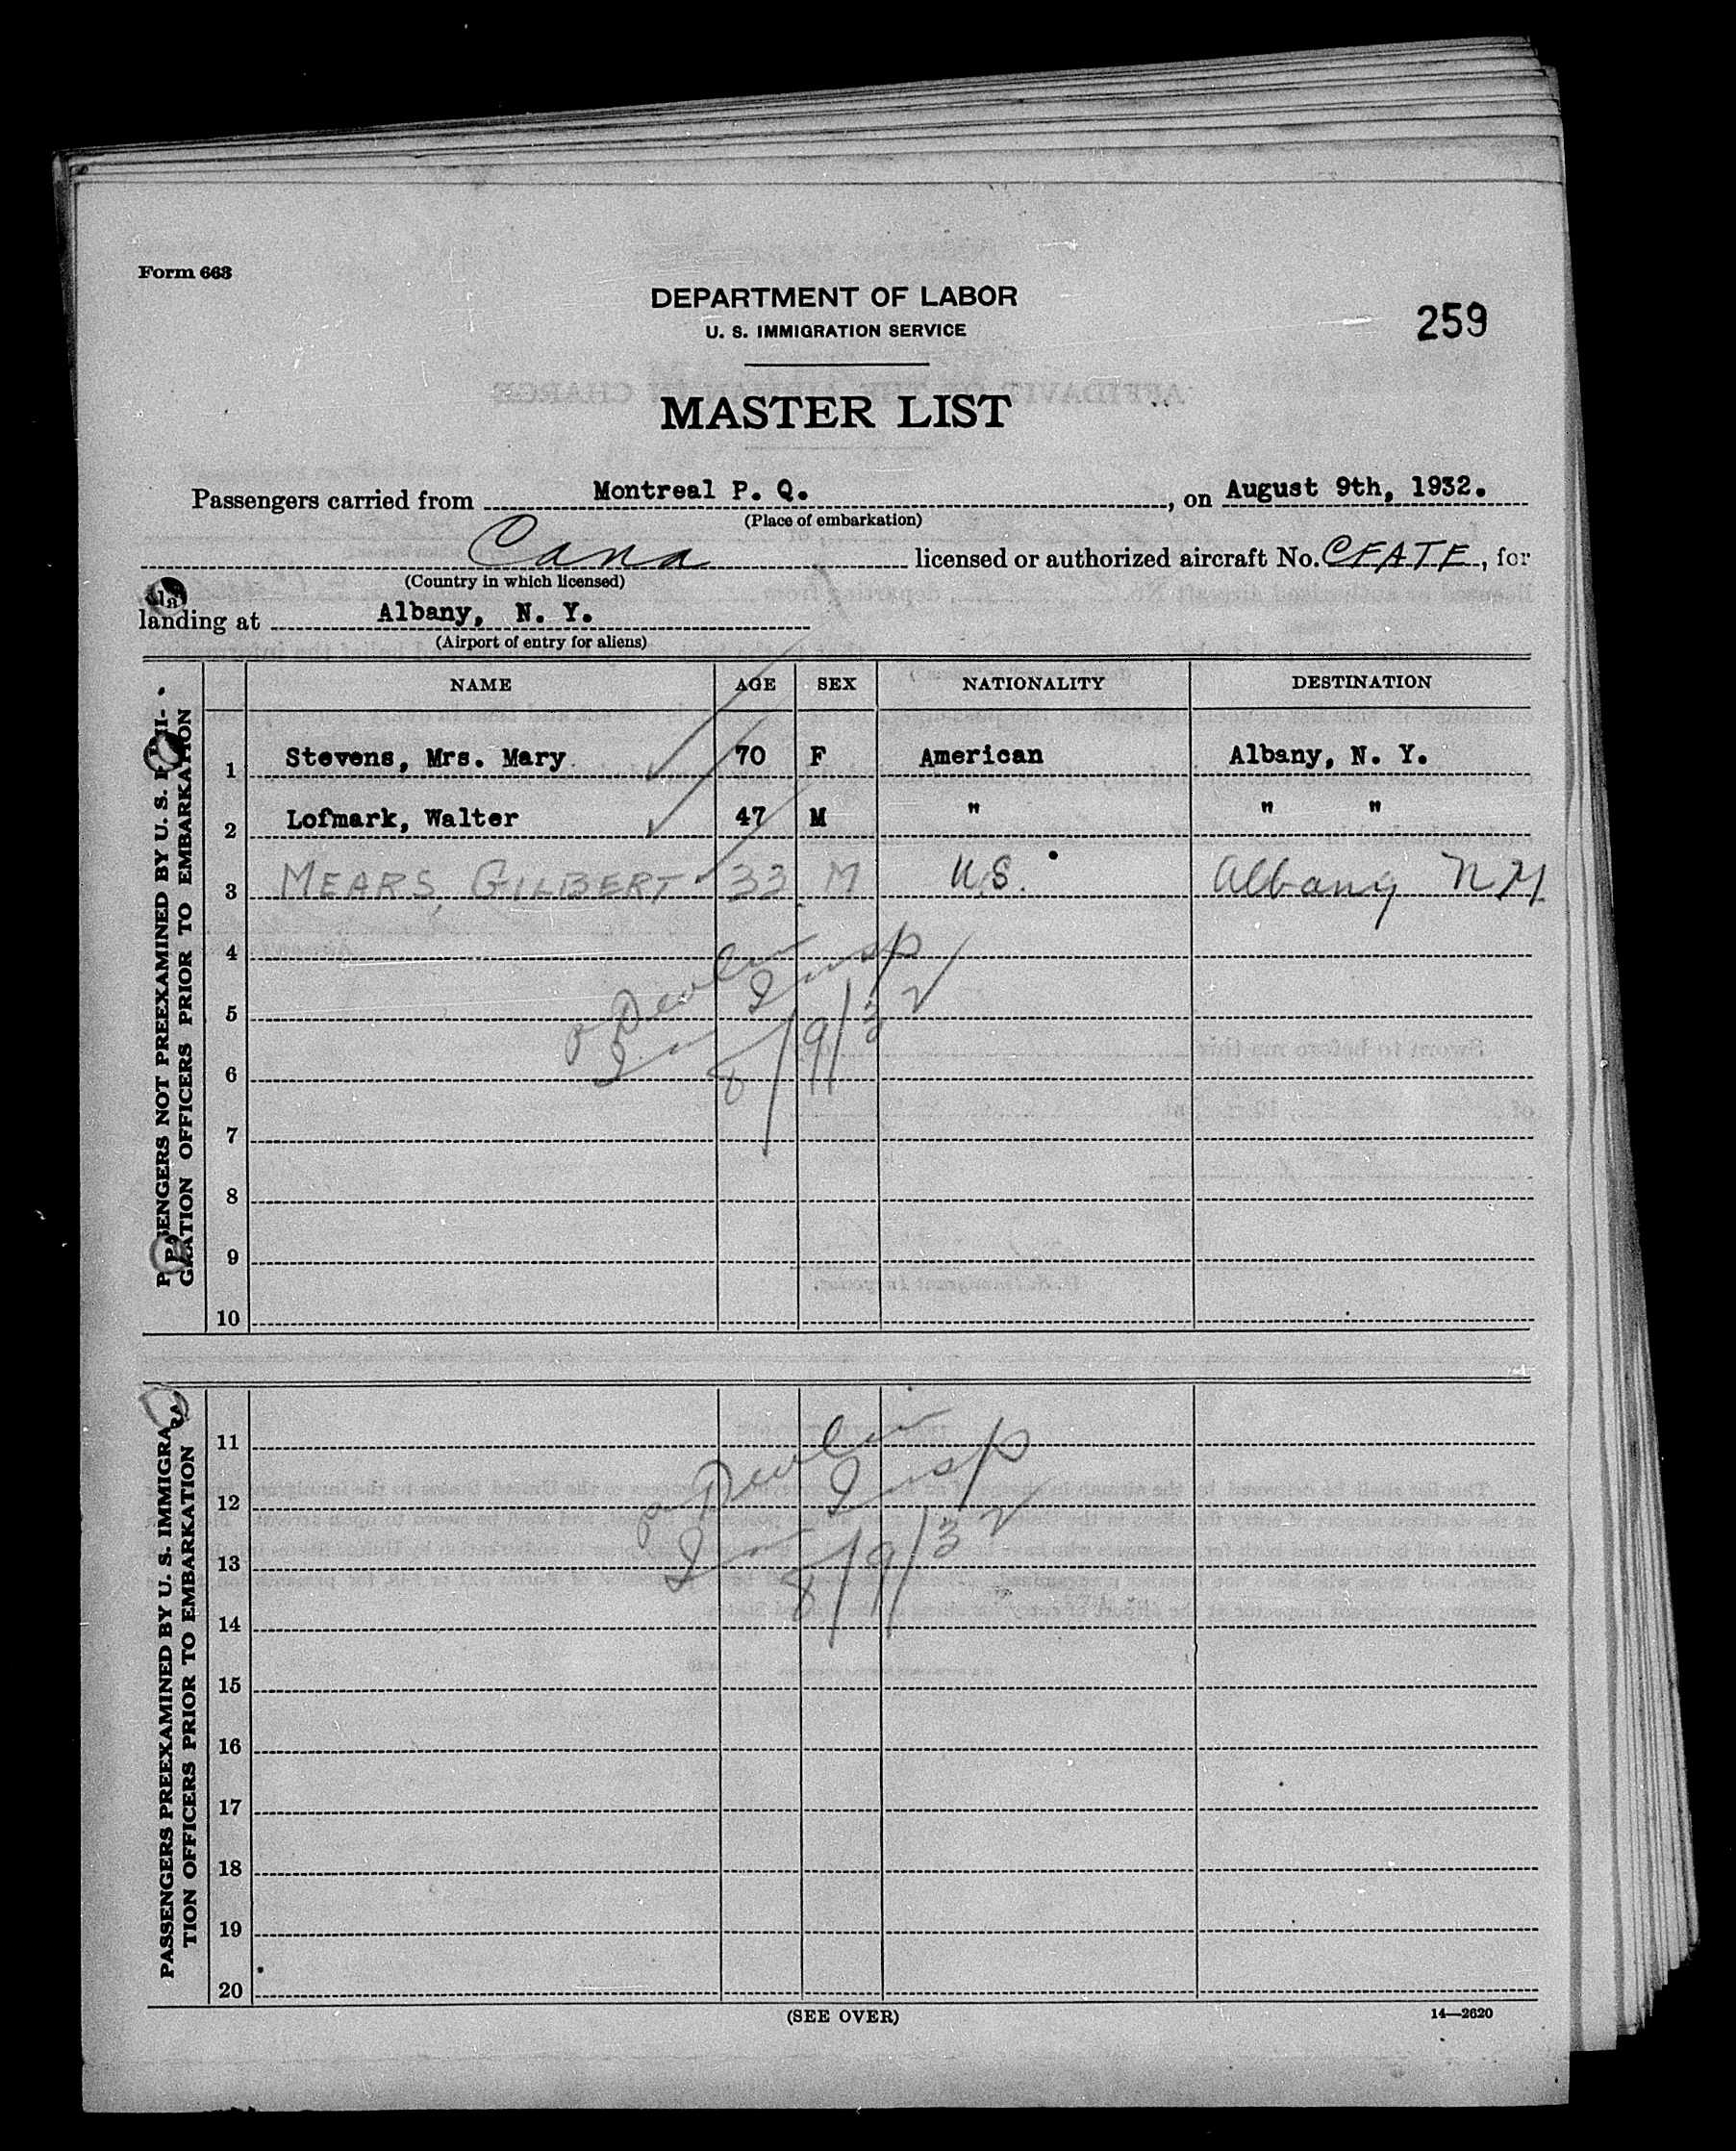 Form 663
DEPARTMENT OF LABOR
U. S. IMMIGRATION SERVICE
259
MASTER LIST
Passengers carried from Montreal P. Q. , on August 9th, 1932.
(Place of embarkation)
Cana licensed or authorized aircraft No. CFATF, for
(Country in which licensed)
landing at Albany, N. Y.
(Airport of entry for aliens)
NAME AGE SEX NATIONALITY DESTINATION
PASSENGERS NOT PREEXAMINED BY U. S.
GRATION OFFICERS PRIOR TO EMBARKATION
1 Stevens, Mrs. Mary 70 F American Albany, N. Y.
2 Lofmark, Walter 47 M " " "
3 MEARS, GILBERT 33 M U.S. Albany N Y
4
5
6
7
8
9
10
Devlin
Insp
8/9/32
PASSENGERS PREEXAMINED BY U. S. IMMIGRA
TION OFFICERS PRIOR TO EMBARKATION
11
12
13
14
15
16
17
18
19
20
Devlin
Insp
8/9/32
(SEE OVER)
14—2620